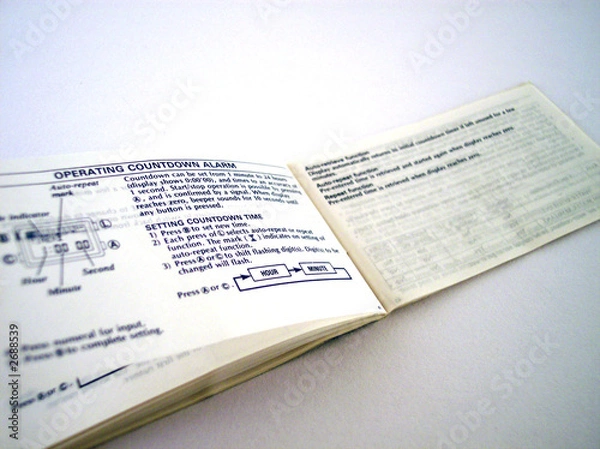 OPERATING COUNTDOWN ALARM
Countdown can be set from 1 minute to 24 hours
(display shows 0:00'00), and times to an accuracy of
1 second. Start/stop operation is possible by pressing
Ⓐ, and is confirmed by a signal. When display
reaches zero, beeper sounds for 10 seconds until
any button is pressed.
Auto-repeat
mark
indicator
Ⓛ
Ⓐ
Hour
Second
Minute
SETTING COUNTDOWN TIME
1) Press Ⓑ to set new time.
2) Each press of Ⓒ selects auto-repeat or repeat
function. The mark ( ) indicates on setting of
auto-repeat function.
3) Press Ⓐ or Ⓒ to shift flashing digit(s). Digit(s) to be
changed will flash.
Press Ⓐ or Ⓒ.
HOUR
MINUTE
Press numeral for input.
Press Ⓑ to complete setting.
or Ⓒ
Auto-retrieve function
Display automatically returns to initial countdown timer if left unused for a few
minutes.
Auto-repeat function
Pre-set time is retrieved and started again when display reaches zero.
Repeat function
Pre-entered time is retrieved when display reaches zero.
Adobe Stock | #2688539